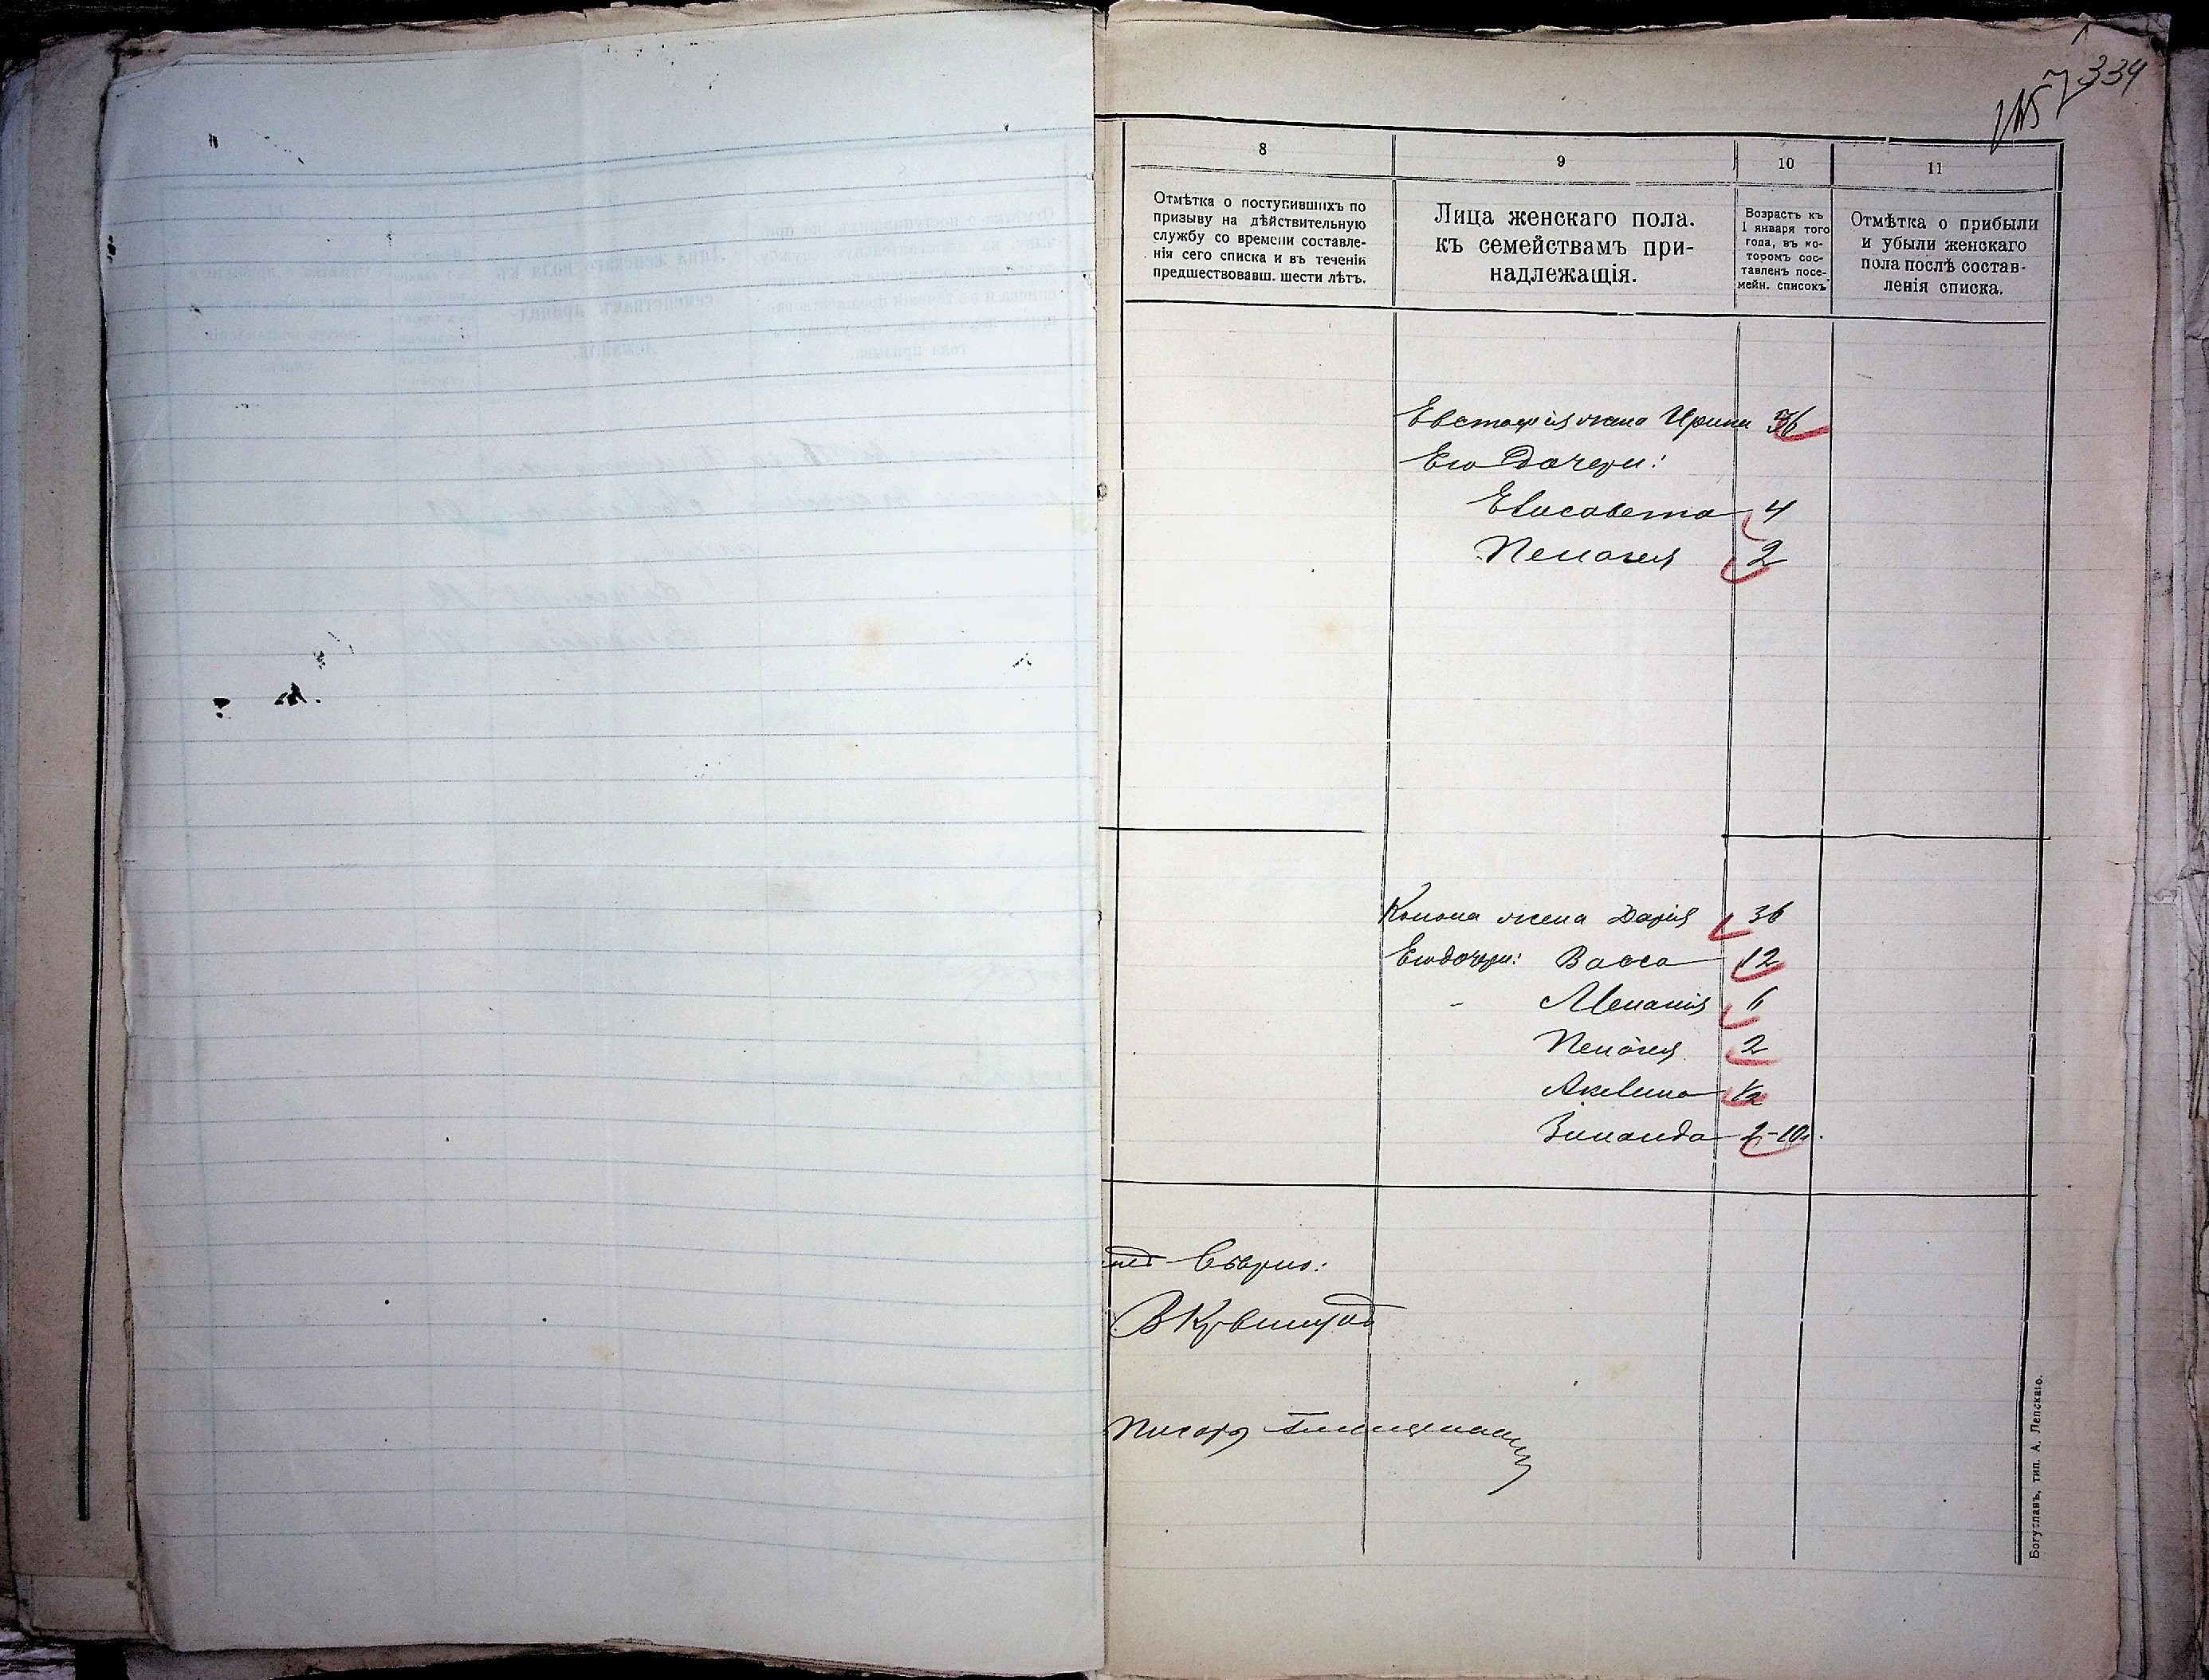 334
8
9
10
11
Отмѣтка о поступившихъ по
призыву на дѣйствительную
службу со времени составле-
нія сего списка и въ теченіи
предшествовавш. шести лѣтъ.
Лица женскаго пола.
къ семействамъ при-
надлежащія.
Возрастъ къ
1 января того
года, въ ко-
торомъ сос-
тавленъ посе-
мейн. списокъ
Отмѣтка о прибыли
и убыли женскаго
пола послѣ состав-
ленія списка.
Евстафія жена Ирина 36
Его дочери:
Елисавета 4
Пелагея 2
Конона жена Дарія 36
Его дочери: Васса 12
Меланія 6
Пелагея 2
Акилина 1/2
Зинаида
Вѣрно:
Писарь
Богуславъ, тип. А. Лепскаго.